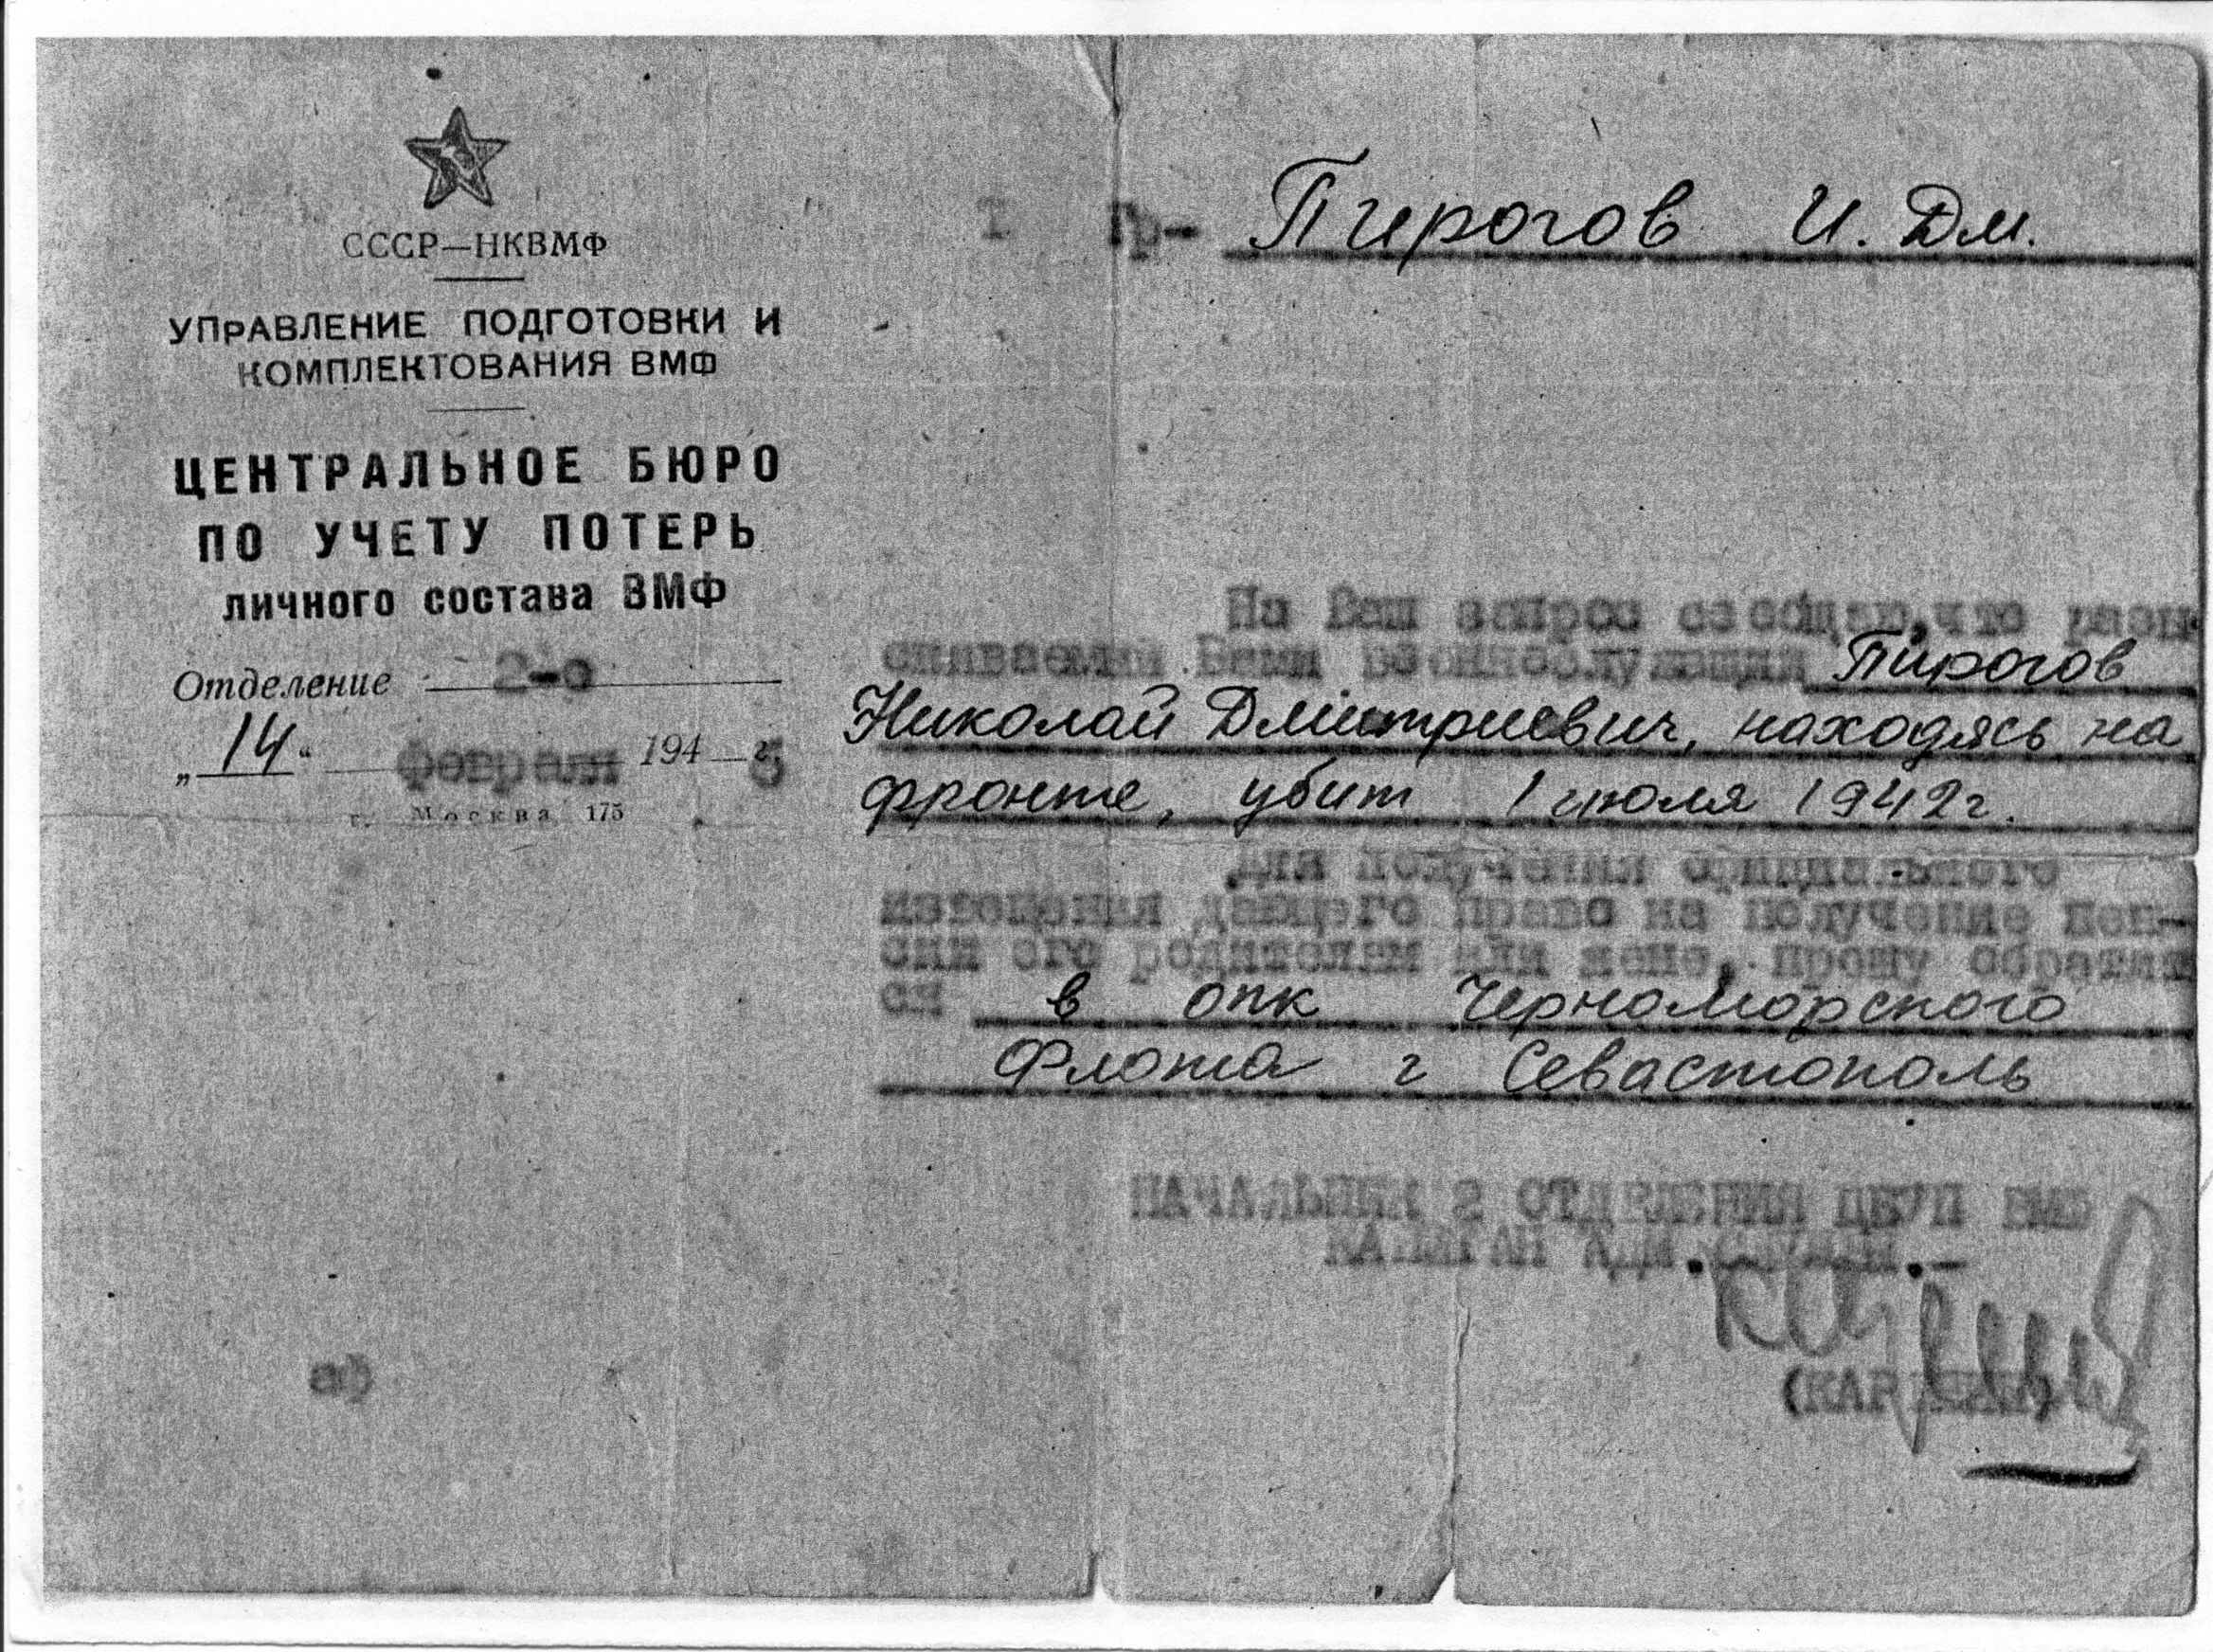 СССР—НКВМФ
УПРАВЛЕНИЕ ПОДГОТОВКИ И
КОМПЛЕКТОВАНИЯ ВМФ
ЦЕНТРАЛЬНОЕ БЮРО
ПО УЧЕТУ ПОТЕРЬ
личного состава ВМФ
Отделение 2-е
„14“ февраля 194 5 г.
г. Москва 175
Гр- Пирогов И. Дм.
На Ваш запрос сообщаю, что разы-
скиваемый Вами военнослужащий Пирогов
Николай Дмитриевич, находясь на
фронте, убит 1 июля 1942 г.
Для получения официального
извещения дающего право на получение пен-
сии его родителям или жене, прошу обратит
ся в опк Черноморского
Флота г Севастополь
НАЧАЛЬНИК 2 ОТДЕЛЕНИЯ ЦБУП ВМФ
КАПИТАН АДМ.СЛУЖБЫ.-